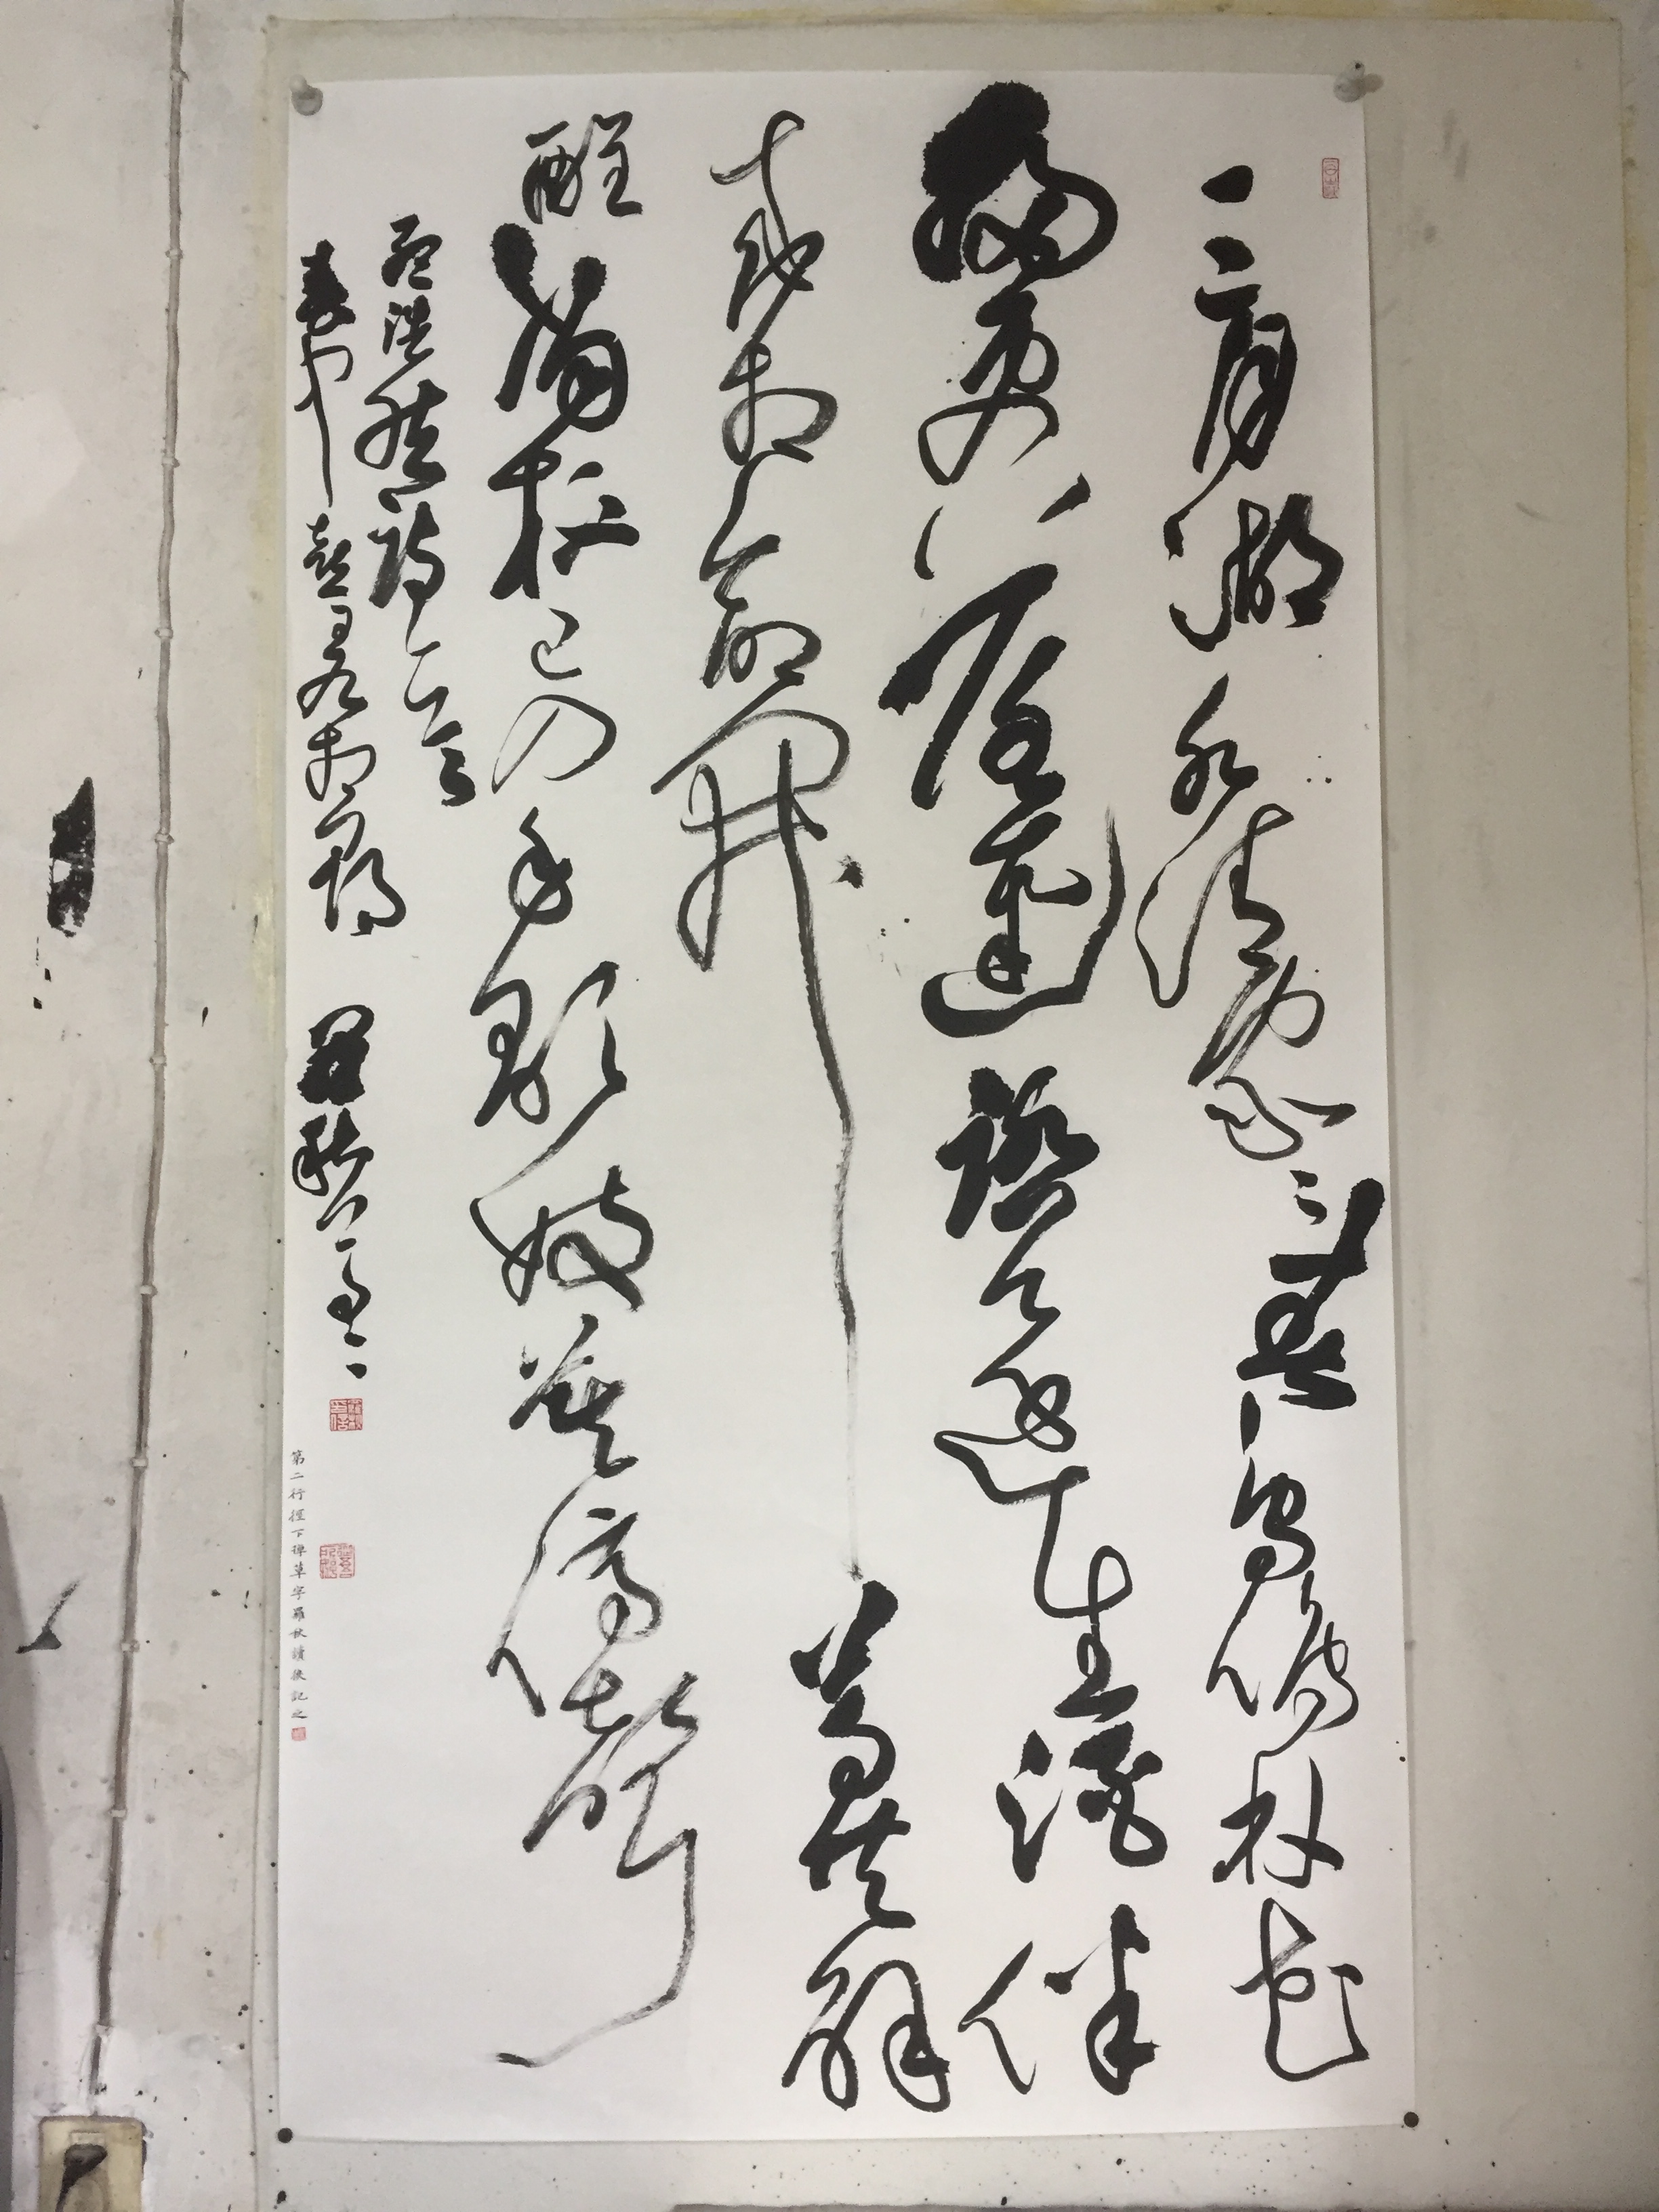 二月湖水清家〻春鳥鳴林花
掃更落徑踏還生酒伴
來相命開尊共解
酲當杯已入手歌妓莫停聲
孟浩然詩一首
春中喜王九相尋 羅秋
第二行徑下 草字羅秋讀後記之